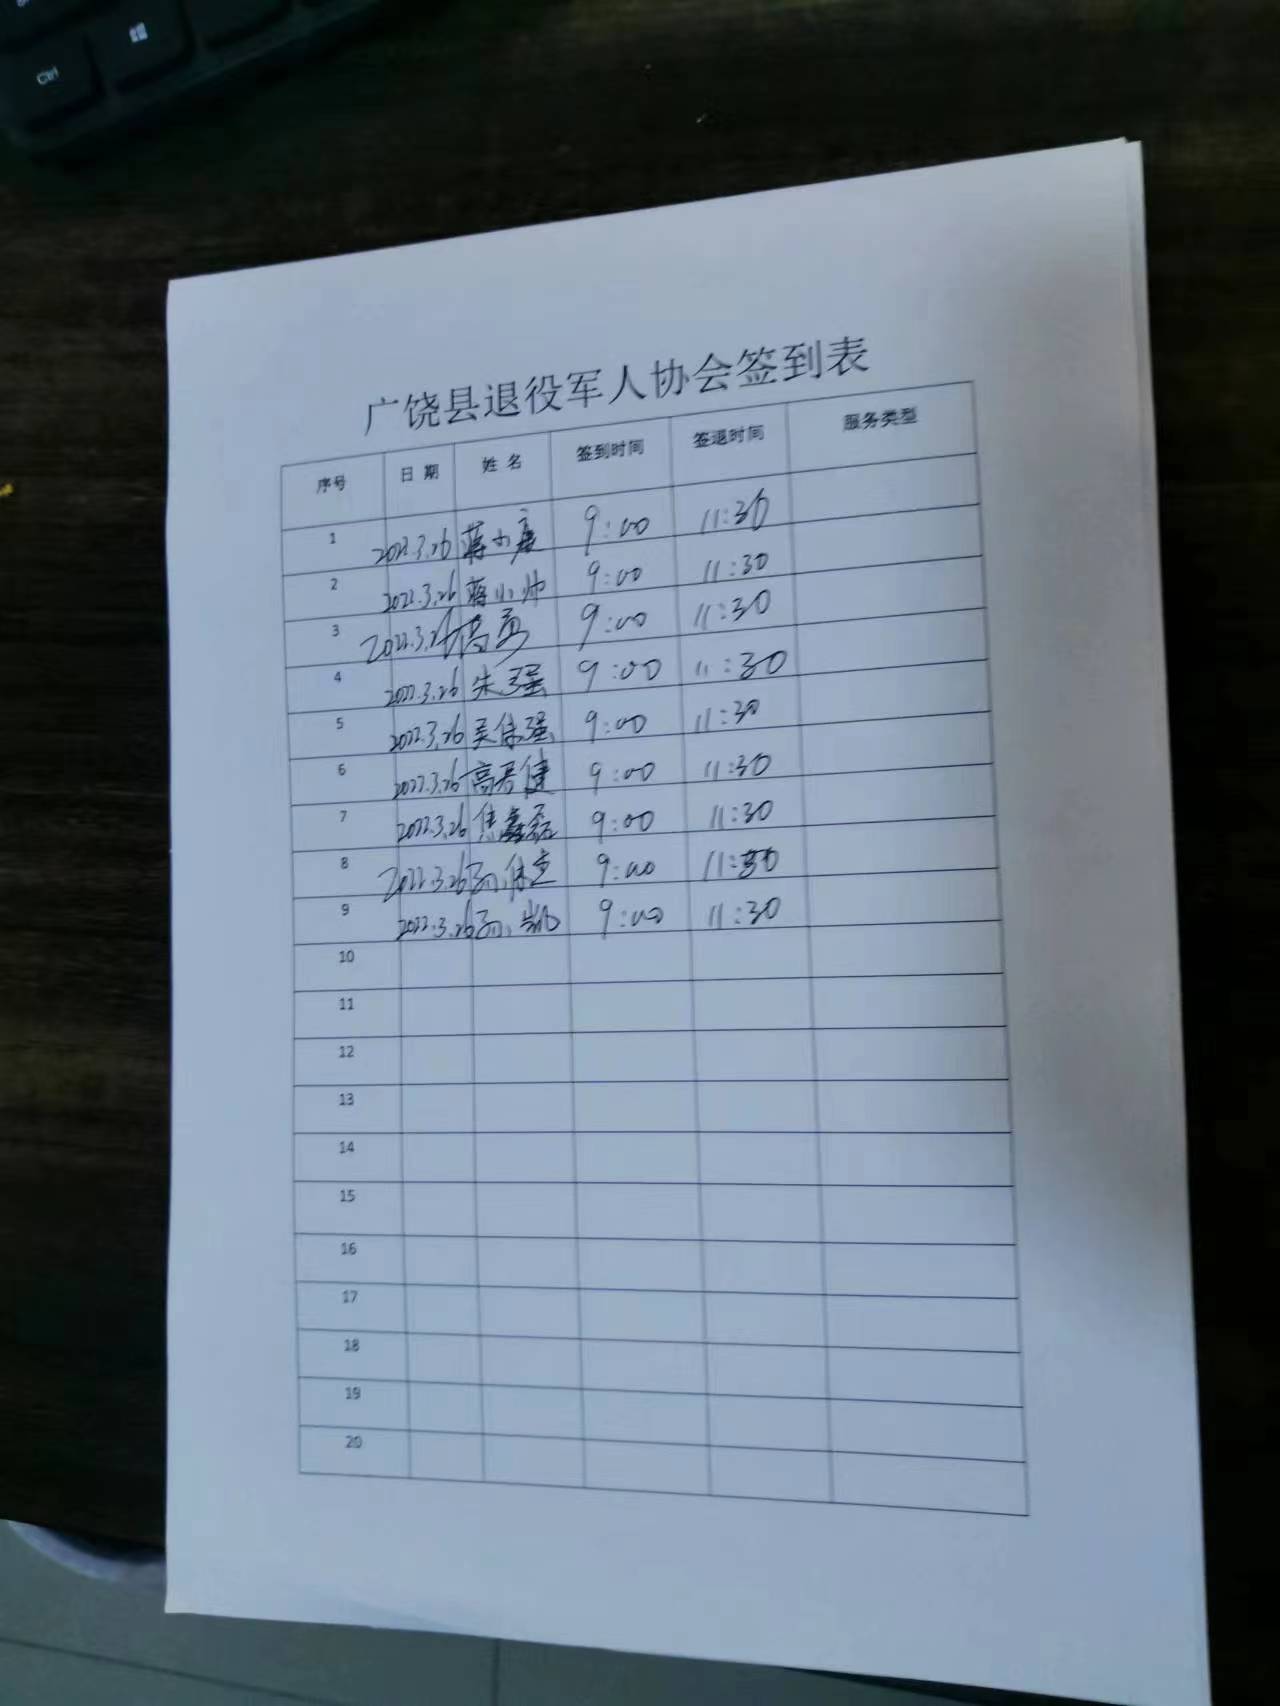 Ctrl
广饶县退役军人协会签到表
序号 日期 姓名 签到时间 签退时间 服务类型
1 2022.3.26 蒋小康 9:00 11:30
2 2022.3.26 蒋小帅 9:00 11:30
3 2022.3.26 9:00 11:30
4 2022.3.26 朱强 9:00 11:30
5 2022.3.26 吴保强 9:00 11:30
6 2022.3.26 高 健 9:00 11:30
7 2022.3.26 焦鑫磊 9:00 11:30
8 2022.3.26 孙 9:00 11:30
9 2022.3.26 孙凯 9:00 11:30
10
11
12
13
14
15
16
17
18
19
20